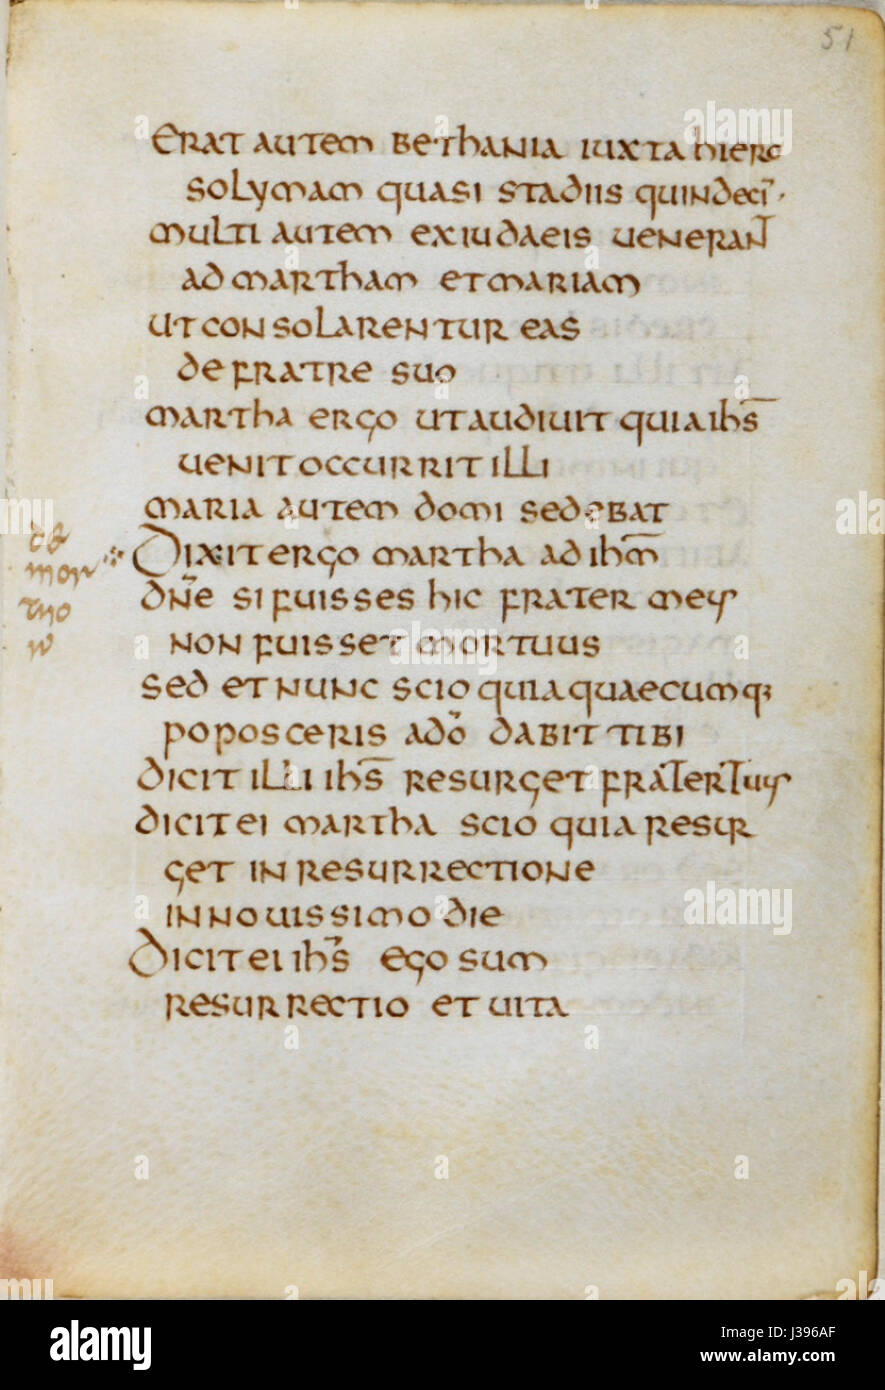 51
erat autem bethania iuxta hiero
solymam quasi stadiis quindecī·
multi autem ex iudaeis uenerant
ad martham et mariam
ut consolarentur eas
de fratre suo
martha ergo ut audiuit quia ihs̄
uenit occurrit illi
maria autem domi sedebat
dixit ergo martha ad ihm̄
dn̄e si fuisses hic frater meus
non fuisset mortuus
sed et nunc scio quia quaecumq;
poposceris a dō dabit tibi
dicit illi ihs̄ resurget frater tuus
dicit ei martha scio quia resur
get in resurrectione
in nouissimo die
dicit ei ihs̄ ego sum
resurrectio et uita
de
mor
tuo
alamy
a alamy stock photo
J396AF
www.alamy.com